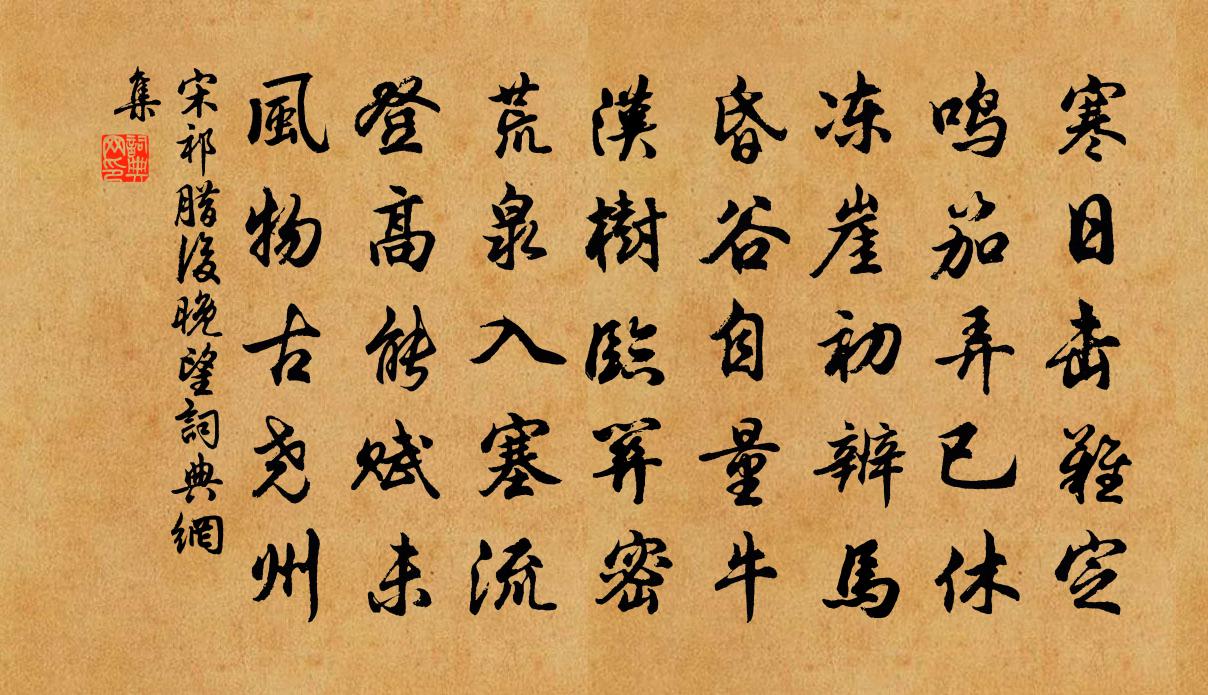 寒日击難定
鸣笳弄已休
冻崖初辨馬
昏谷自量牛
漢樹臨關密
荒泉入塞流
登高能賦未
風物古尧州
宋祁腊後晚望詞典網
集
詞典网印